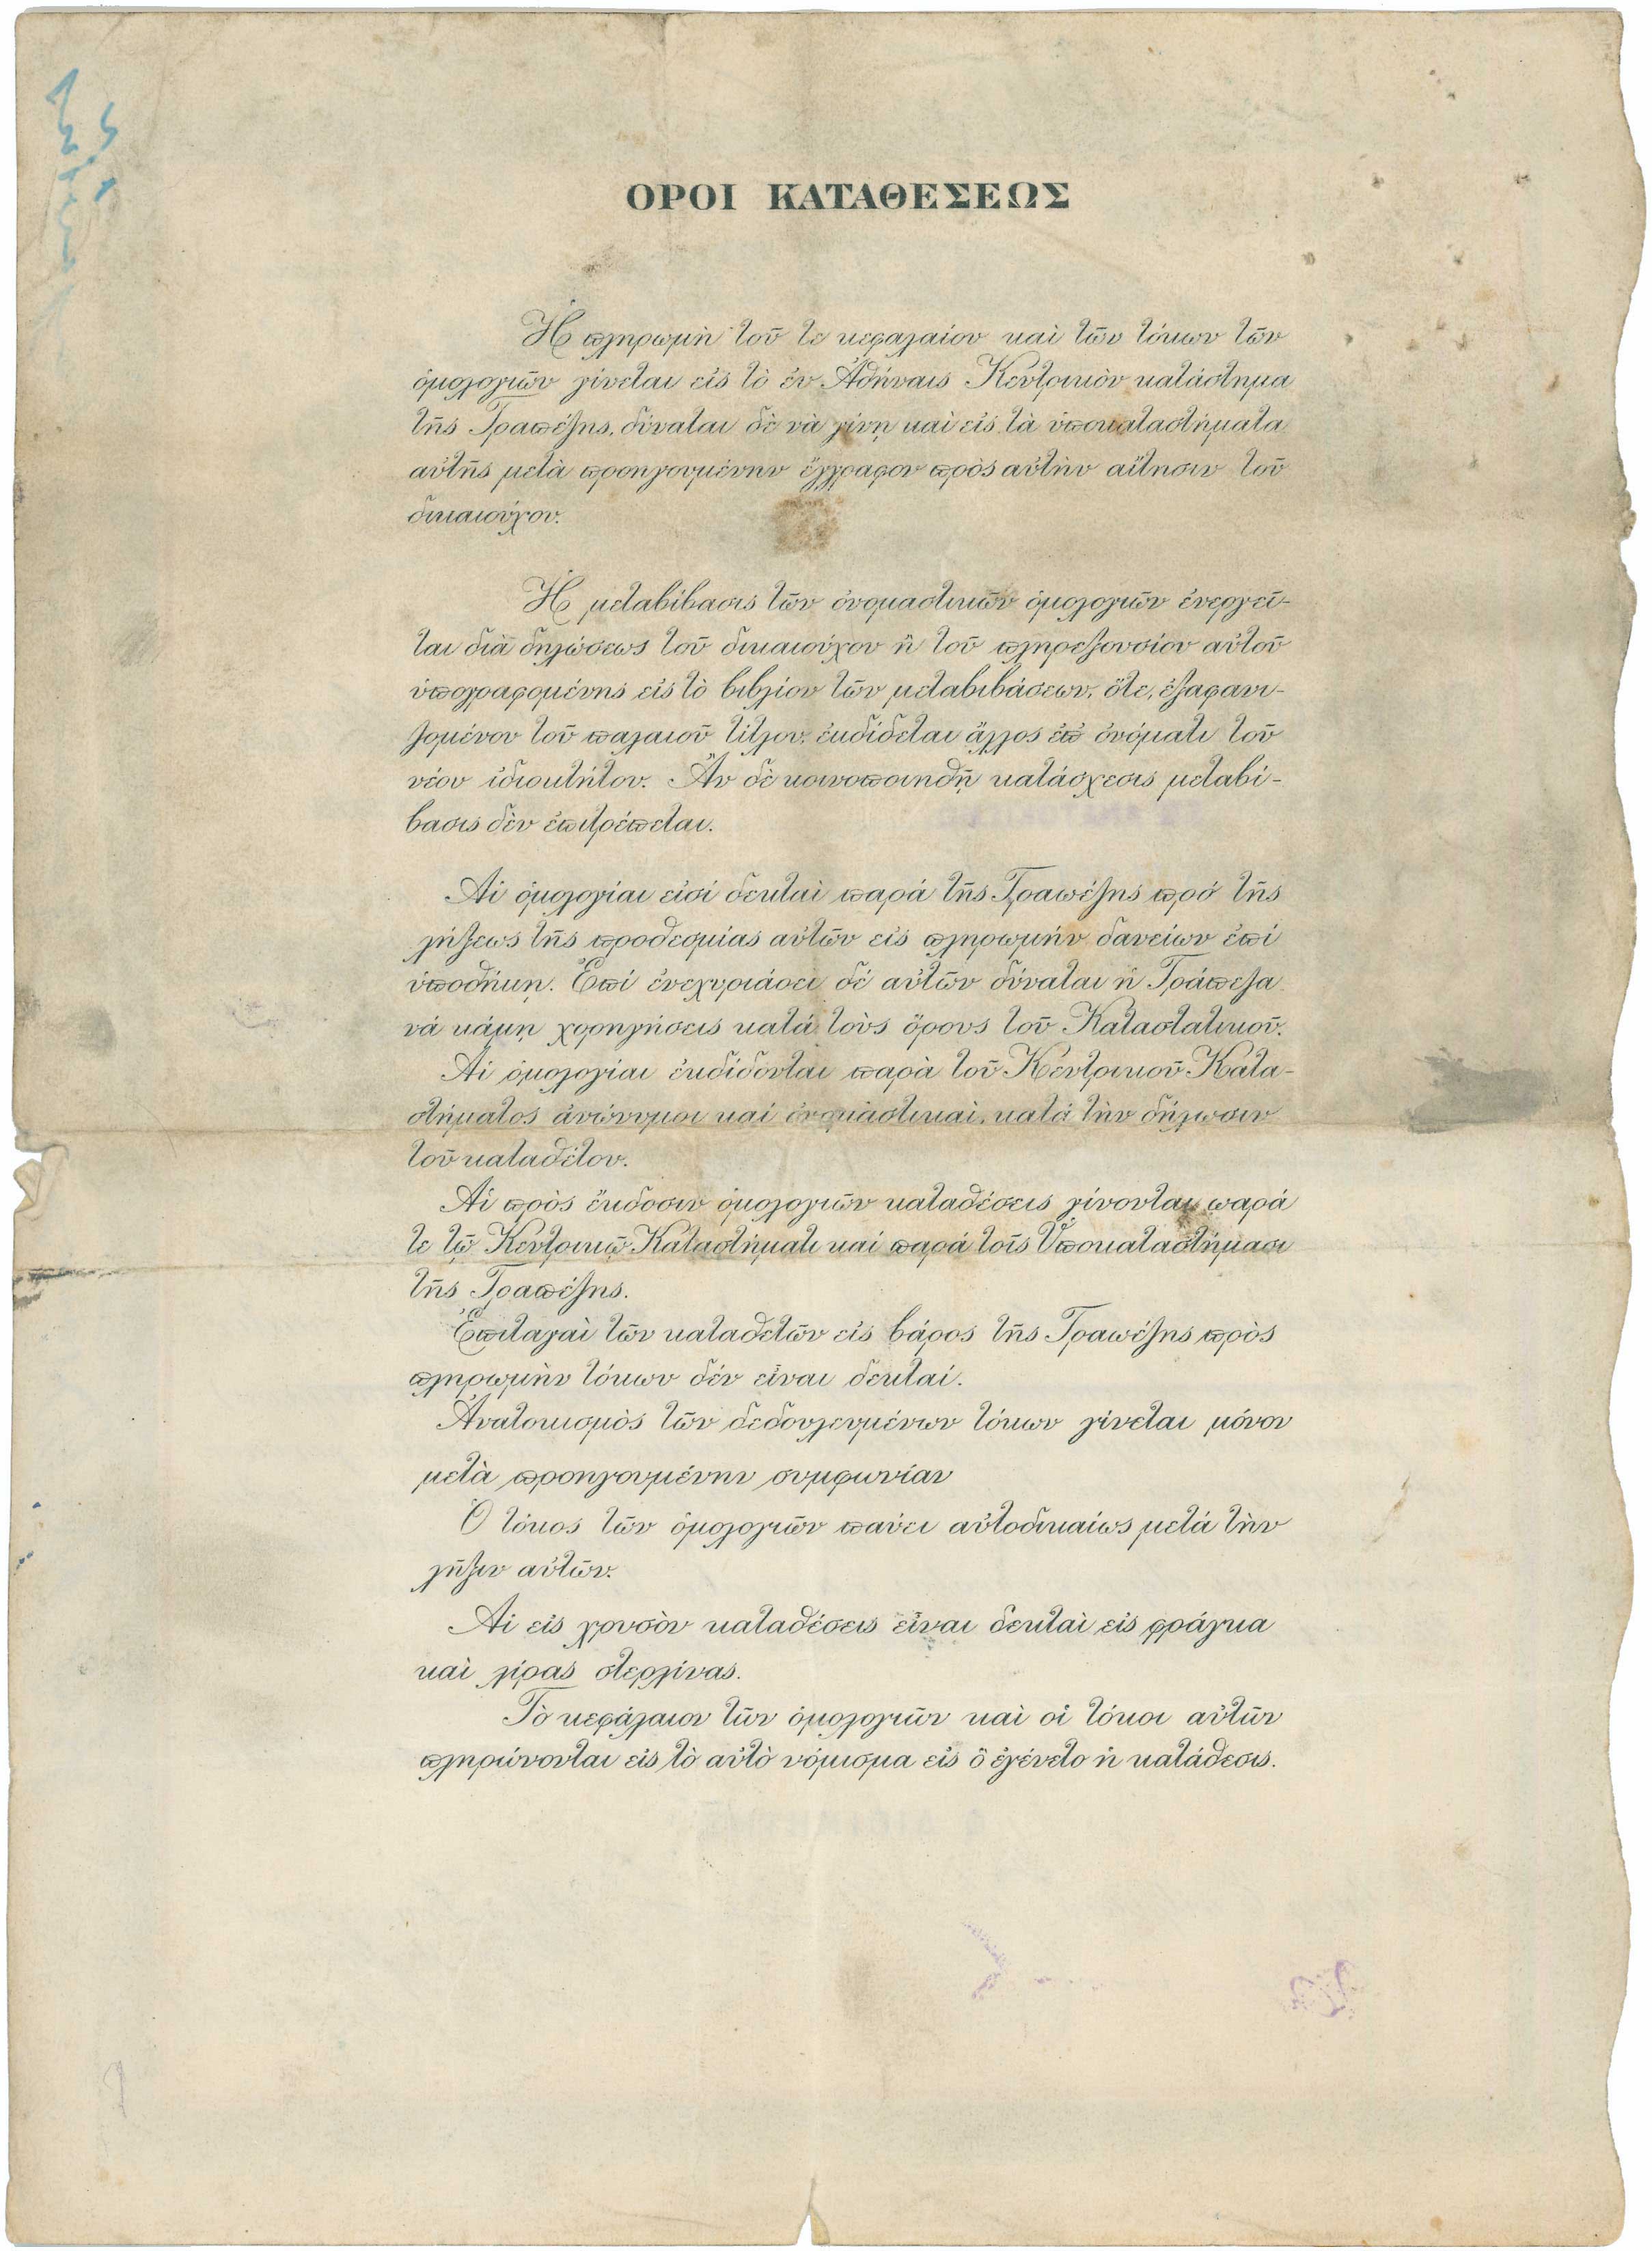 ΟΡΟΙ ΚΑΤΑΘΕΣΕΩΣ
Ἡ πληρωμὴ τοῦ τε κεφαλαίου καὶ τῶν τόκων τῶν
ὁμολογιῶν γίνεται εἰς τὸ ἐν Ἀθήναις Κεντρικὸν κατάστημα
τῆς Τραπέζης, δύναται δὲ νὰ γίνῃ καὶ εἰς τὰ ὑποκαταστήματα
αὐτῆς μετὰ προηγουμένην ἔγγραφον πρὸς αὐτὴν αἴτησιν τοῦ
δικαιούχου.
Ἡ μεταβίβασις τῶν ὀνομαστικῶν ὁμολογιῶν ἐνεργεῖ-
ται διὰ δηλώσεως τοῦ δικαιούχου ἢ τοῦ πληρεξουσίου αὐτοῦ
ὑπογραφομένης εἰς τὸ βιβλίον τῶν μεταβιβάσεων, ὅτε, ἐξαφανι-
ζομένου τοῦ παλαιοῦ τίτλου, ἐκδίδεται ἄλλος ἐπ' ὀνόματι τοῦ
νέου ἰδιοκτήτου. Ἂν δὲ κοινοποιηθῇ κατάσχεσις μεταβί-
βασις δὲν ἐπιτρέπεται.
Αἱ ὁμολογίαι εἰσί δεκταὶ παρά τῆς Τραπέζης πρό τῆς
λήξεως τῆς προθεσμίας αὐτῶν εἰς πληρωμήν δανείων ἐπί
ὑποθήκῃ. Ἐπί ἐνεχυριάσει δέ αὐτῶν δύναται ἡ Τράπεζα
νά κάμῃ χορηγήσεις κατά τοὺς ὅρους τοῦ Καταστατικοῦ.
Αἱ ὁμολογίαι ἐκδίδονται παρὰ τοῦ Κεντρικοῦ Κατα-
στήματος ἀνώνυμοι καί ὀνομαστικαί, κατά τὴν δήλωσιν
τοῦ καταθέτου.
Αἱ πρὸς ἔκδοσιν ὁμολογιῶν καταθέσεις γίνονται παρά
τε τῷ Κεντρικῷ Καταστήματι καί παρά τοῖς Ὑποκαταστήμασι
τῆς Τραπέζης.
Ἐπιταγαὶ τῶν καταθετῶν εἰς βάρος τῆς Τραπέζης πρὸς
πληρωμὴν τόκων δέν εἶναι δεκταί.
Ἀνατοκισμὸς τῶν δεδουλευμένων τόκων γίνεται μόνον
μετὰ προηγουμένην συμφωνίαν
Ὁ τόκος τῶν ὁμολογιῶν παύει αὐτοδικαίως μετά τὴν
λῆξιν αὐτῶν.
Αἱ εἰς χρυσὸν καταθέσεις εἶναι δεκταὶ εἰς φράγκα
καὶ λίρας στερλίνας.
Τὸ κεφάλαιον τῶν ὁμολογιῶν καὶ οἱ τόκοι αὐτῶν
πληρώνονται εἰς τὸ αὐτὸ νόμισμα εἰς ὃ ἐγένετο ἡ κατάθεσις.